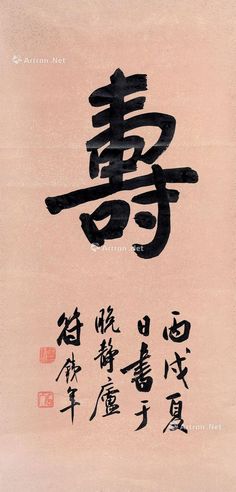 壽
丙戌夏
日書于
晚靜廬
符鐵年
Artron.Net
Artron.Net
Artron.Net
Artron.Net